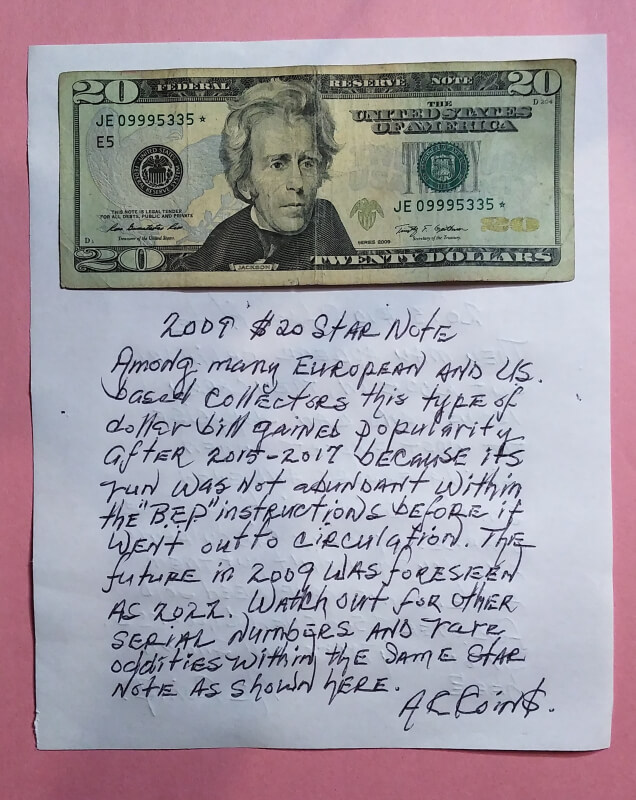 20 FEDERAL RESERVE NOTE 20
D 204
THE
UNITED STATES
OF AMERICA
JE 09995335 *
E5
THIS NOTE IS LEGAL TENDER
FOR ALL DEBTS, PUBLIC AND PRIVATE
Treasurer of the United States.
JE 09995335 *
SERIES 2009
Secretary of the Treasury.
20
20
JACKSON
TWENTY DOLLARS
2009 $20 STAR NOTE
Among many EUROPEAN AND US.
based COLLECTORS this type of
dollar bill gained popularity
after 2015-2017 because its
run was not abundant within
the "B.E.P" instructions before it
WENT out to CIRCULATION. THE
future in 2009 WAS FORESEEN
AS 2022. WATCH OUT for OTHER
SERIAL NUMBERS AND rare
oddities within the same STAR
NOTE AS shown here.